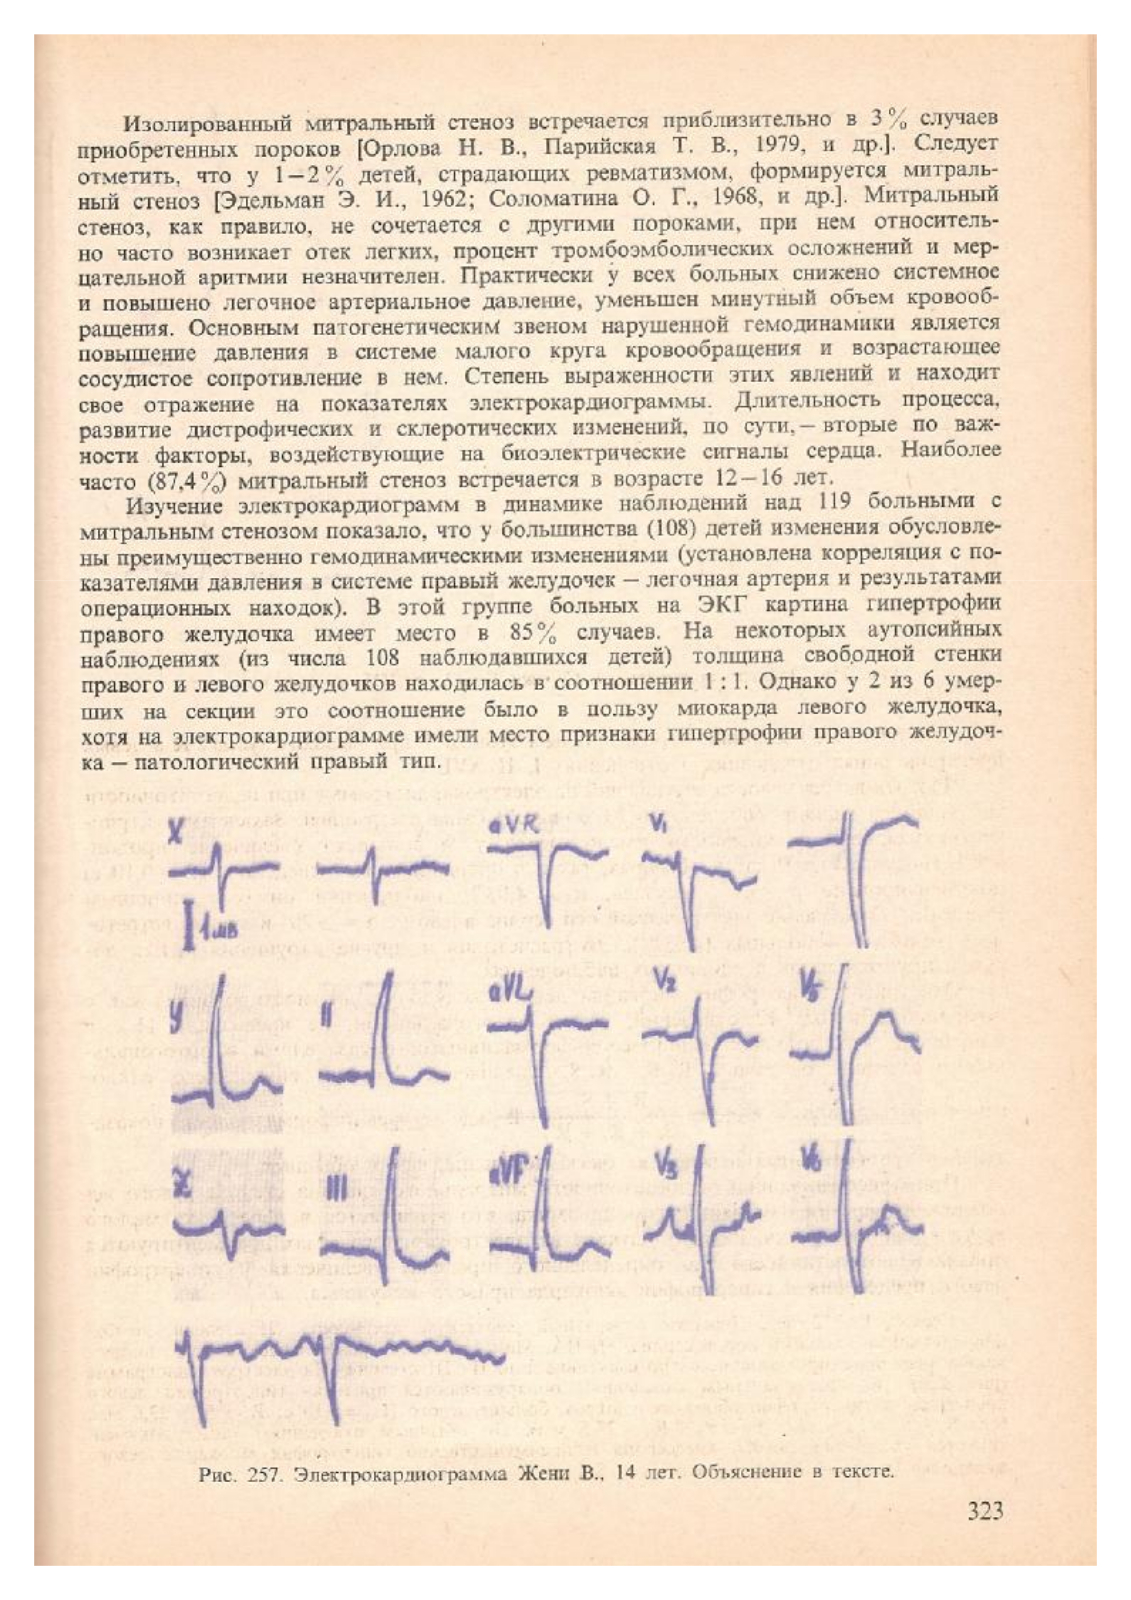 Изолированный митральный стеноз встречается приблизительно в 3% случаев
приобретенных пороков [Орлова Н. В., Парийская Т. В., 1979, и др.]. Следует
отметить, что у 1—2% детей, страдающих ревматизмом, формируется митраль-
ный стеноз [Эдельман Э. И., 1962; Соломатина О. Г., 1968, и др.]. Митральный
стеноз, как правило, не сочетается с другими пороками, при нем относитель-
но часто возникает отек легких, процент тромбоэмболических осложнений и мер-
цательной аритмии незначителен. Практически у всех больных снижено системное
и повышено легочное артериальное давление, уменьшен минутный объем кровооб-
ращения. Основным патогенетическим звеном нарушенной гемодинамики является
повышение давления в системе малого круга кровообращения и возрастающее
сосудистое сопротивление в нем. Степень выраженности этих явлений и находит
свое отражение на показателях электрокардиограммы. Длительность процесса,
развитие дистрофических и склеротических изменений, по сути,— вторые по важ-
ности факторы, воздействующие на биоэлектрические сигналы сердца. Наиболее
часто (87,4%) митральный стеноз встречается в возрасте 12—16 лет.
Изучение электрокардиограмм в динамике наблюдений над 119 больными с
митральным стенозом показало, что у большинства (108) детей изменения обусловле-
ны преимущественно гемодинамическими изменениями (установлена корреляция с по-
казателями давления в системе правый желудочек — легочная артерия и результатами
операционных находок). В этой группе больных на ЭКГ картина гипертрофии
правого желудочка имеет место в 85% случаев. На некоторых аутопсийных
наблюдениях (из числа 108 наблюдавшихся детей) толщина свободной стенки
правого и левого желудочков находилась в соотношении 1 : 1. Однако у 2 из 6 умер-
ших на секции это соотношение было в пользу миокарда левого желудочка,
хотя на электрокардиограмме имели место признаки гипертрофии правого желудоч-
ка — патологический правый тип.
X aVR V1
1 мв
Y II aVL V2 V5
Z III aVF V3 V6
Рис. 257. Электрокардиограмма Жени В., 14 лет. Объяснение в тексте.
323